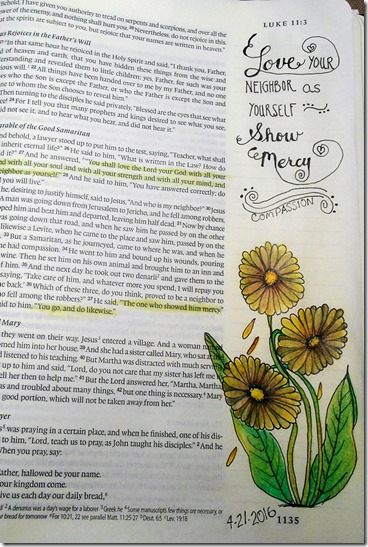 LUKE 11:3
Behold, I have given you authority to tread on serpents and scorpions, and over all the
power of the enemy, and nothing shall hurt you. 20 Nevertheless, do not rejoice in this,
that the spirits are subject to you, but rejoice that your names are written in heaven."
Rejoices in the Father's Will
21 In that same hour he rejoiced in the Holy Spirit and said, "I thank you, Father,
of heaven and earth, that you have hidden these things from the wise and
understanding and revealed them to little children; yes, Father, for such was your
gracious will. 22 All things have been handed over to me by my Father, and no one
who the Son is except the Father, or who the Father is except the Son and
to whom the Son chooses to reveal him."
Then turning to the disciples he said privately, "Blessed are the eyes that see what
24 For I tell you that many prophets and kings desired to see what you see,
did not see it, and to hear what you hear, and did not hear it."
Parable of the Good Samaritan
behold, a lawyer stood up to put him to the test, saying, "Teacher, what shall
inherit eternal life?" 26 He said to him, "What is written in the Law? How do
it?" 27 And he answered, "You shall love the Lord your God with all your
and with all your soul and with all your strength and with all your mind, and
neighbor as yourself." 28 And he said to him, "You have answered correctly; do
you will live."
he, desiring to justify himself, said to Jesus, "And who is my neighbor?" 30 Jesus
A man was going down from Jerusalem to Jericho, and he fell among robbers,
him and beat him and departed, leaving him half dead. 31 Now by chance
was going down that road, and when he saw him he passed by on the other
likewise a Levite, when he came to the place and saw him, passed by on the
33 But a Samaritan, as he journeyed, came to where he was, and when he
had compassion. 34 He went to him and bound up his wounds, pouring
wine. Then he set him on his own animal and brought him to an inn and
of him. 35 And the next day he took out two denarii and gave them to the
saying, 'Take care of him, and whatever more you spend, I will repay you
back.' 36 Which of these three, do you think, proved to be a neighbor to
who fell among the robbers?" 37 He said, "The one who showed him mercy."
said to him, "You go, and do likewise."
Mary
they went on their way, Jesus entered a village. And a woman named
welcomed him into her house. 39 And she had a sister called Mary, who sat at
listened to his teaching. 40 But Martha was distracted with much serving.
up to him and said, "Lord, do you not care that my sister has left me
Tell her then to help me." 41 But the Lord answered her, "Martha, Martha,
and troubled about many things, 42 but one thing is necessary. Mary
good portion, which will not be taken away from her."
was praying in a certain place, and when he finished, one of his dis-
to him, "Lord, teach us to pray, as John taught his disciples." 2 And he
When you pray, say:
"Father, hallowed be your name.
Your kingdom come.
Give us each day our daily bread,
A denarius was a day's wage for a laborer Greek he Some manuscripts few things are necessary, or
bread for tomorrow 10:22 see parallel Matt. 11:25-27 Deut. 6:5 Lev. 19:18
Love YOUR
NEIGHBOR AS
YOURSELF
Show
Mercy
COMPASSION
4-21-2016
1135